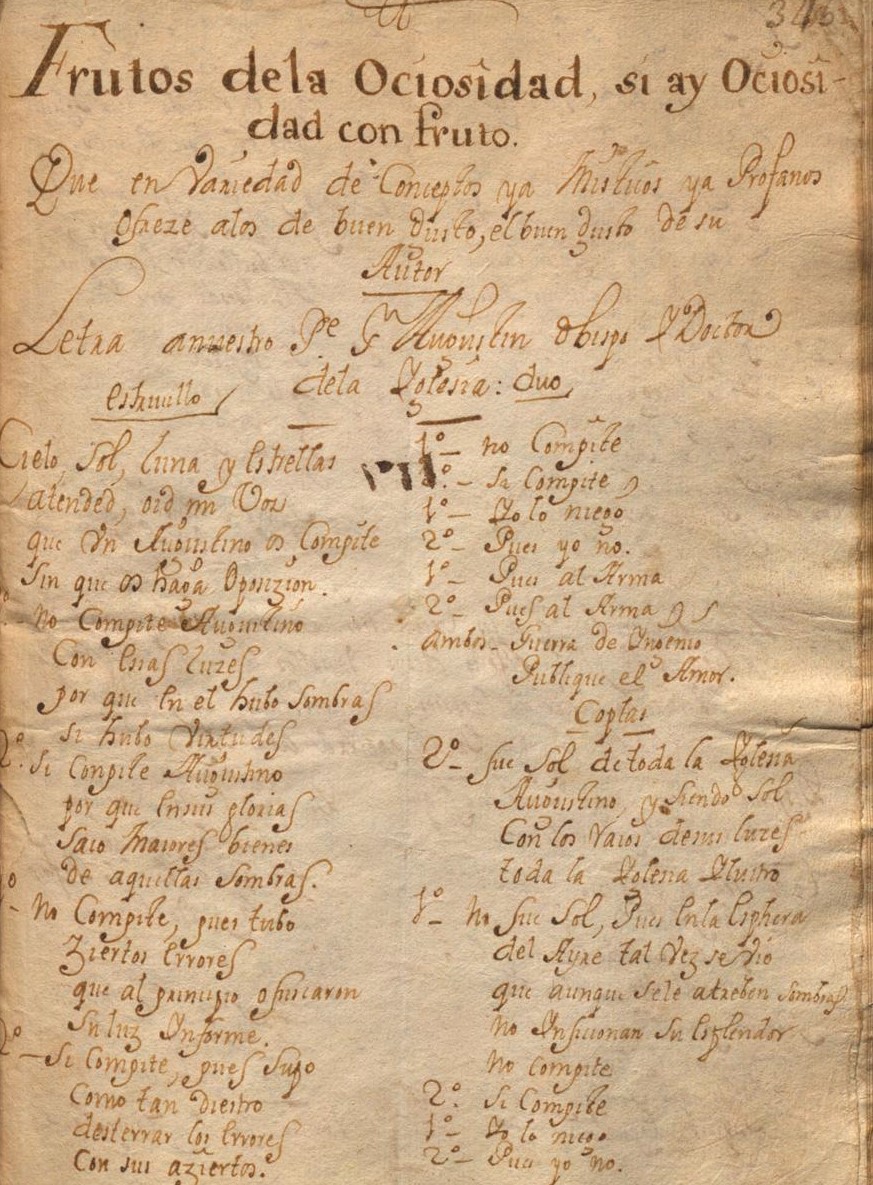 343
Frutos dela Ociosidad, si ay Ociosi-
dad con fruto.
Que en Variedad de Conceptos ya Misticos ya Profanos
Ofreze alos de buen Gusto, el buen gusto de su
Autor
Letra anuestro Pe Sn Augustin Obispo Y Doctor
dela Yglesia: duo
estrivillo
Cielo, Sol, luna y Estrellas
atended, oid mi Voz
que Vn Augustino os Compite
Sin que os haga Oposizion.
- No Compite Augustino
Con Esas luzes
por que En el hubo sombras
si hubo Virtudes
2º. Si Conpite Augustino
por que Ensus glorias
Saco Maiores bienes
de aquellas sombras.
1o - No Compite, pues tubo
Ziertos Errores
que al principio ofuscaron
Su luz Ynforme.
2º - Si Compite, pues Supo
Como tan diestro
desterrar los Errores
Con sus aziertos.
1º - no Compite
2º. - Si Compite
1º - Yo lo niego
2º - Pues yo no.
1º - Pues al Arma
2º - Pues al Arma
ambos - Guerra de Yngenio
Publique el Amor.
Coplas
2º - fue Sol de toda la Yglesia
Augustino, y siendo Sol
Con los raios desus luzes
toda la Yglesia Ylustro
1º - No fue Sol, Pues Enla Esphera
del Ayre tal Vez se Vio
que aunque sele atreben sombras
No Ynficionan Su Esplendor
No compite
2º. Si Compite
1º - Yo lo niego
2º - Pues yo no.